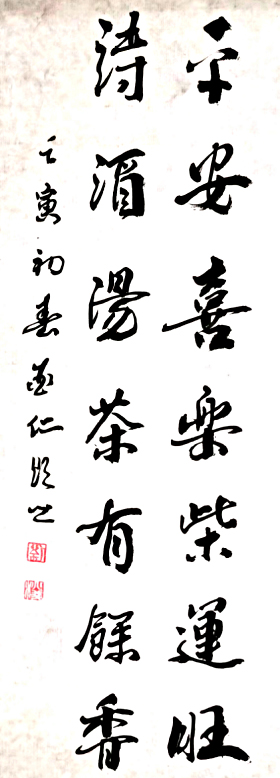 平安喜樂柴運旺
詩酒湯茶有餘香
壬寅初春仁